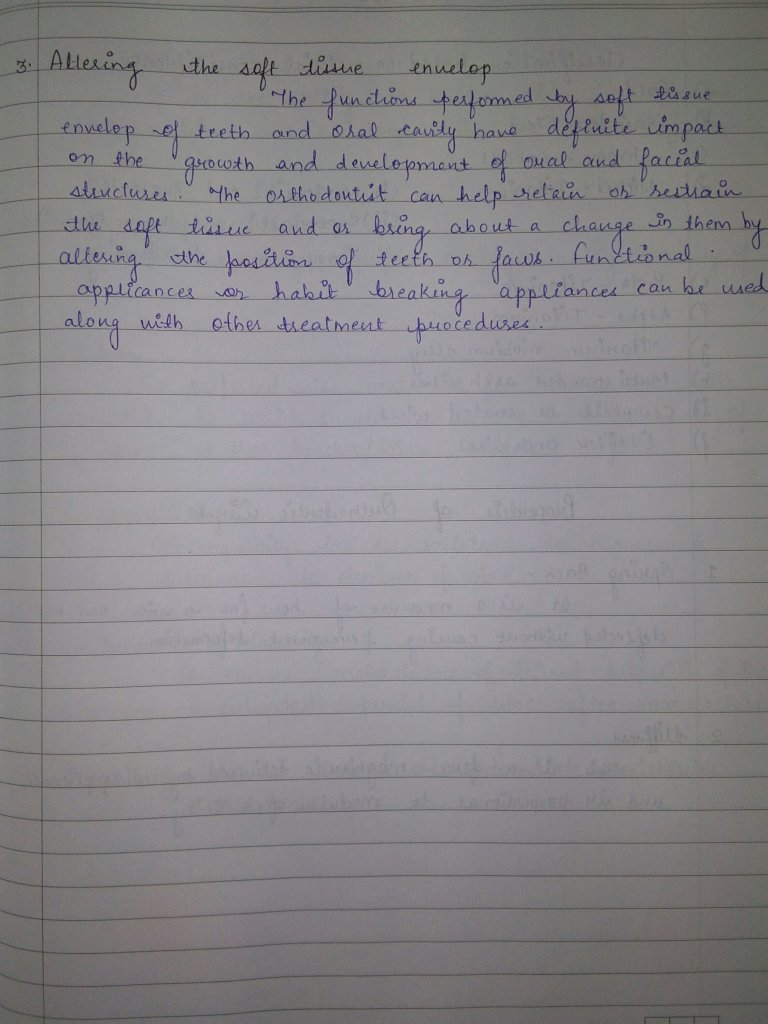 3. Altering the soft tissue envelop
The functions performed by soft tissue
envelop of teeth and oral cavity have definite impact
on the growth and development of oral and facial
structures. The orthodontist can help retain or restrain
the soft tissue and or bring about a change in them by
altering the position of teeth or jaws. functional
applicances or habit breaking appliances can be used
along with other treatment procedures.